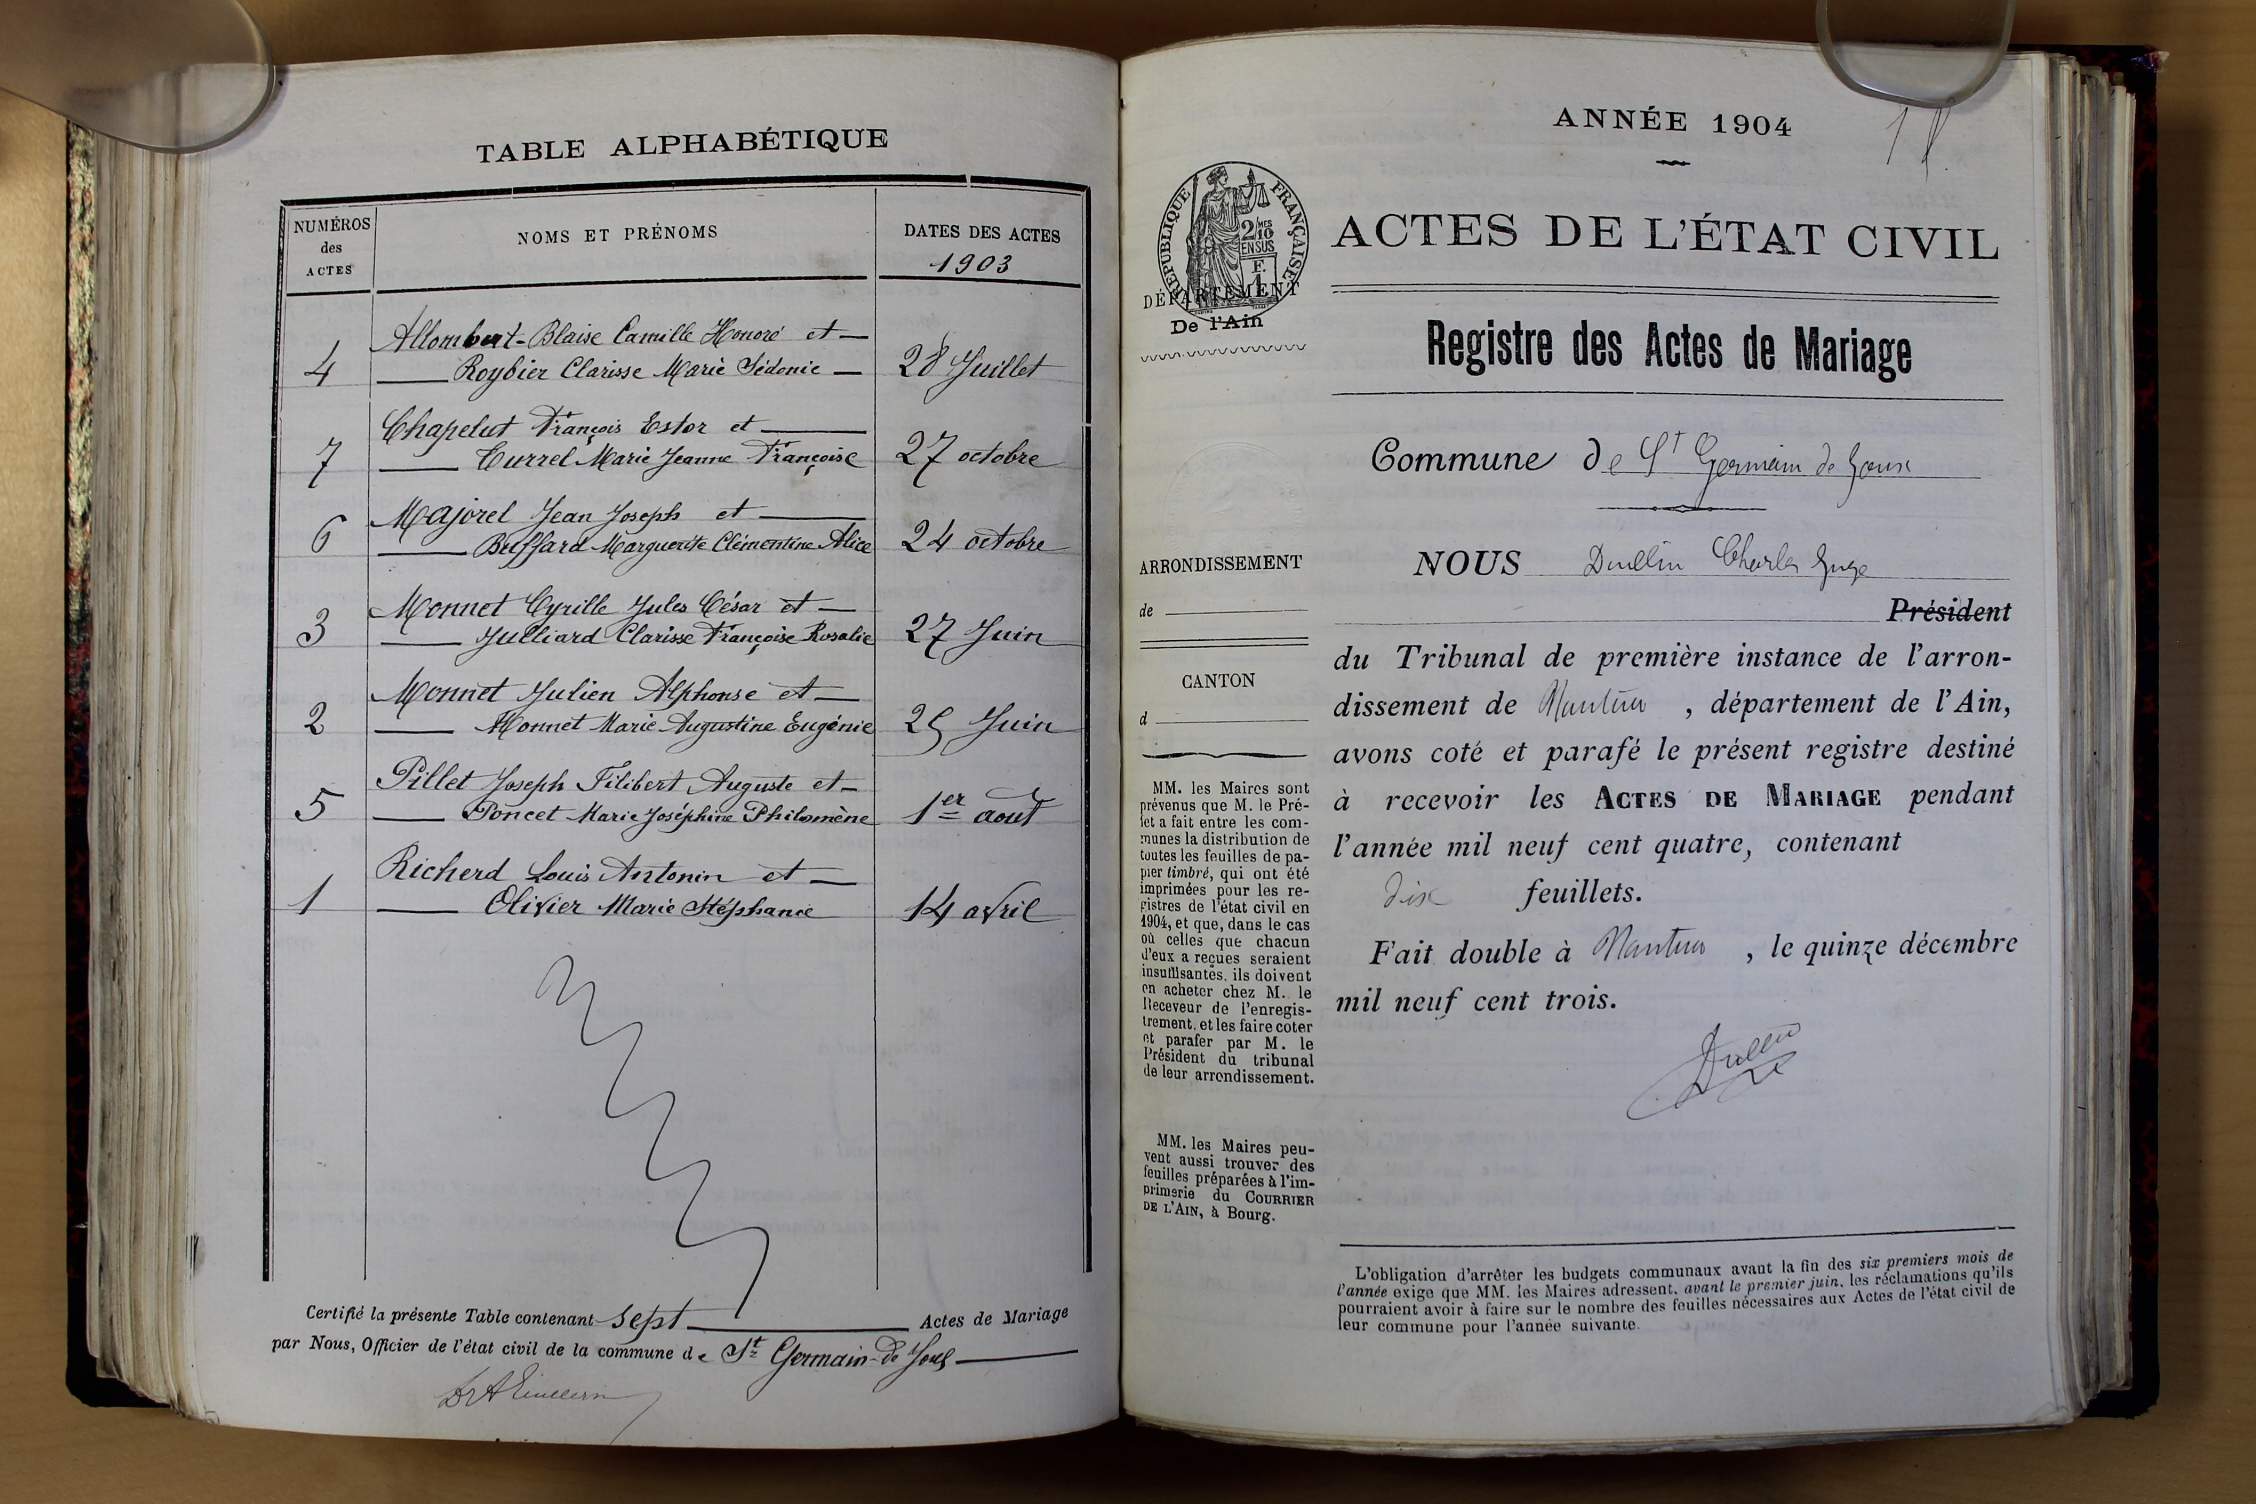 TABLE ALPHABÉTIQUE
NUMÉROS
des
ACTES
NOMS ET PRÉNOMS
DATES DES ACTES
1903
Allombert-Blaise Camille Honoré et
4 Roybier Clarisse Marie Sédonie 28 Juillet
Chapelut François Estor et
7 Turrel Marie Jeanne Françoise 27 octobre
Majorel Jean Joseph et
6 Buffard Marguerite Clémentine Alice 24 octobre
Monnet Cyrille Jules César et
3 Julliard Clarisse Françoise Rosalie 27 Juin
Monnet Julien Alphonse et
2 Monnet Marie Augustine Eugénie 25 Juin
Pillet Joseph Filibert Auguste et
5 Poncet Marie Joséphine Philomène 1er août
Richerd Louis Antonin et
1 Olivier Marie Stéphanie 14 avril
Certifié la présente Table contenant sept Actes de Mariage
par Nous, Officier de l'état civil de la commune de St Germain-de-Joux
ANNÉE 1904
RÉPUBLIQUE FRANÇAISE
2 MES
10
EN SUS
F.
1
DÉPARTEMENT
De l'Ain
ACTES DE L'ÉTAT CIVIL
Registre des Actes de Mariage
Commune de St Germain de Joux
ARRONDISSEMENT
de
CANTON
d
MM. les Maires sont
prévenus que M. le Pré-
fet a fait entre les com-
munes la distribution de
toutes les feuilles de pa-
pier timbré, qui ont été
imprimées pour les re-
gistres de l'état civil en
1904, et que, dans le cas
où celles que chacun
d'eux a reçues seraient
insuffisantes, ils doivent
en acheter chez M. le
Receveur de l'enregis-
trement, et les faire coter
et parafer par M. le
Président du tribunal
de leur arrondissement.
MM. les Maires peu-
vent aussi trouver des
feuilles préparées à l'im-
primerie du COURRIER
DE L'AIN, à Bourg.
NOUS Dullin Charles Juge
Président
du Tribunal de première instance de l'arron-
dissement de Nantua , département de l'Ain,
avons coté et parafé le présent registre destiné
à recevoir les ACTES DE MARIAGE pendant
l'année mil neuf cent quatre, contenant
dix feuillets.
Fait double à Nantua , le quinze décembre
mil neuf cent trois.
Dullin
L'obligation d'arrêter les budgets communaux avant la fin des six premiers mois de
l'année exige que MM. les Maires adressent, avant le premier juin, les réclamations qu'ils
pourraient avoir à faire sur le nombre des feuilles nécessaires aux Actes de l'état civil de
leur commune pour l'année suivante.